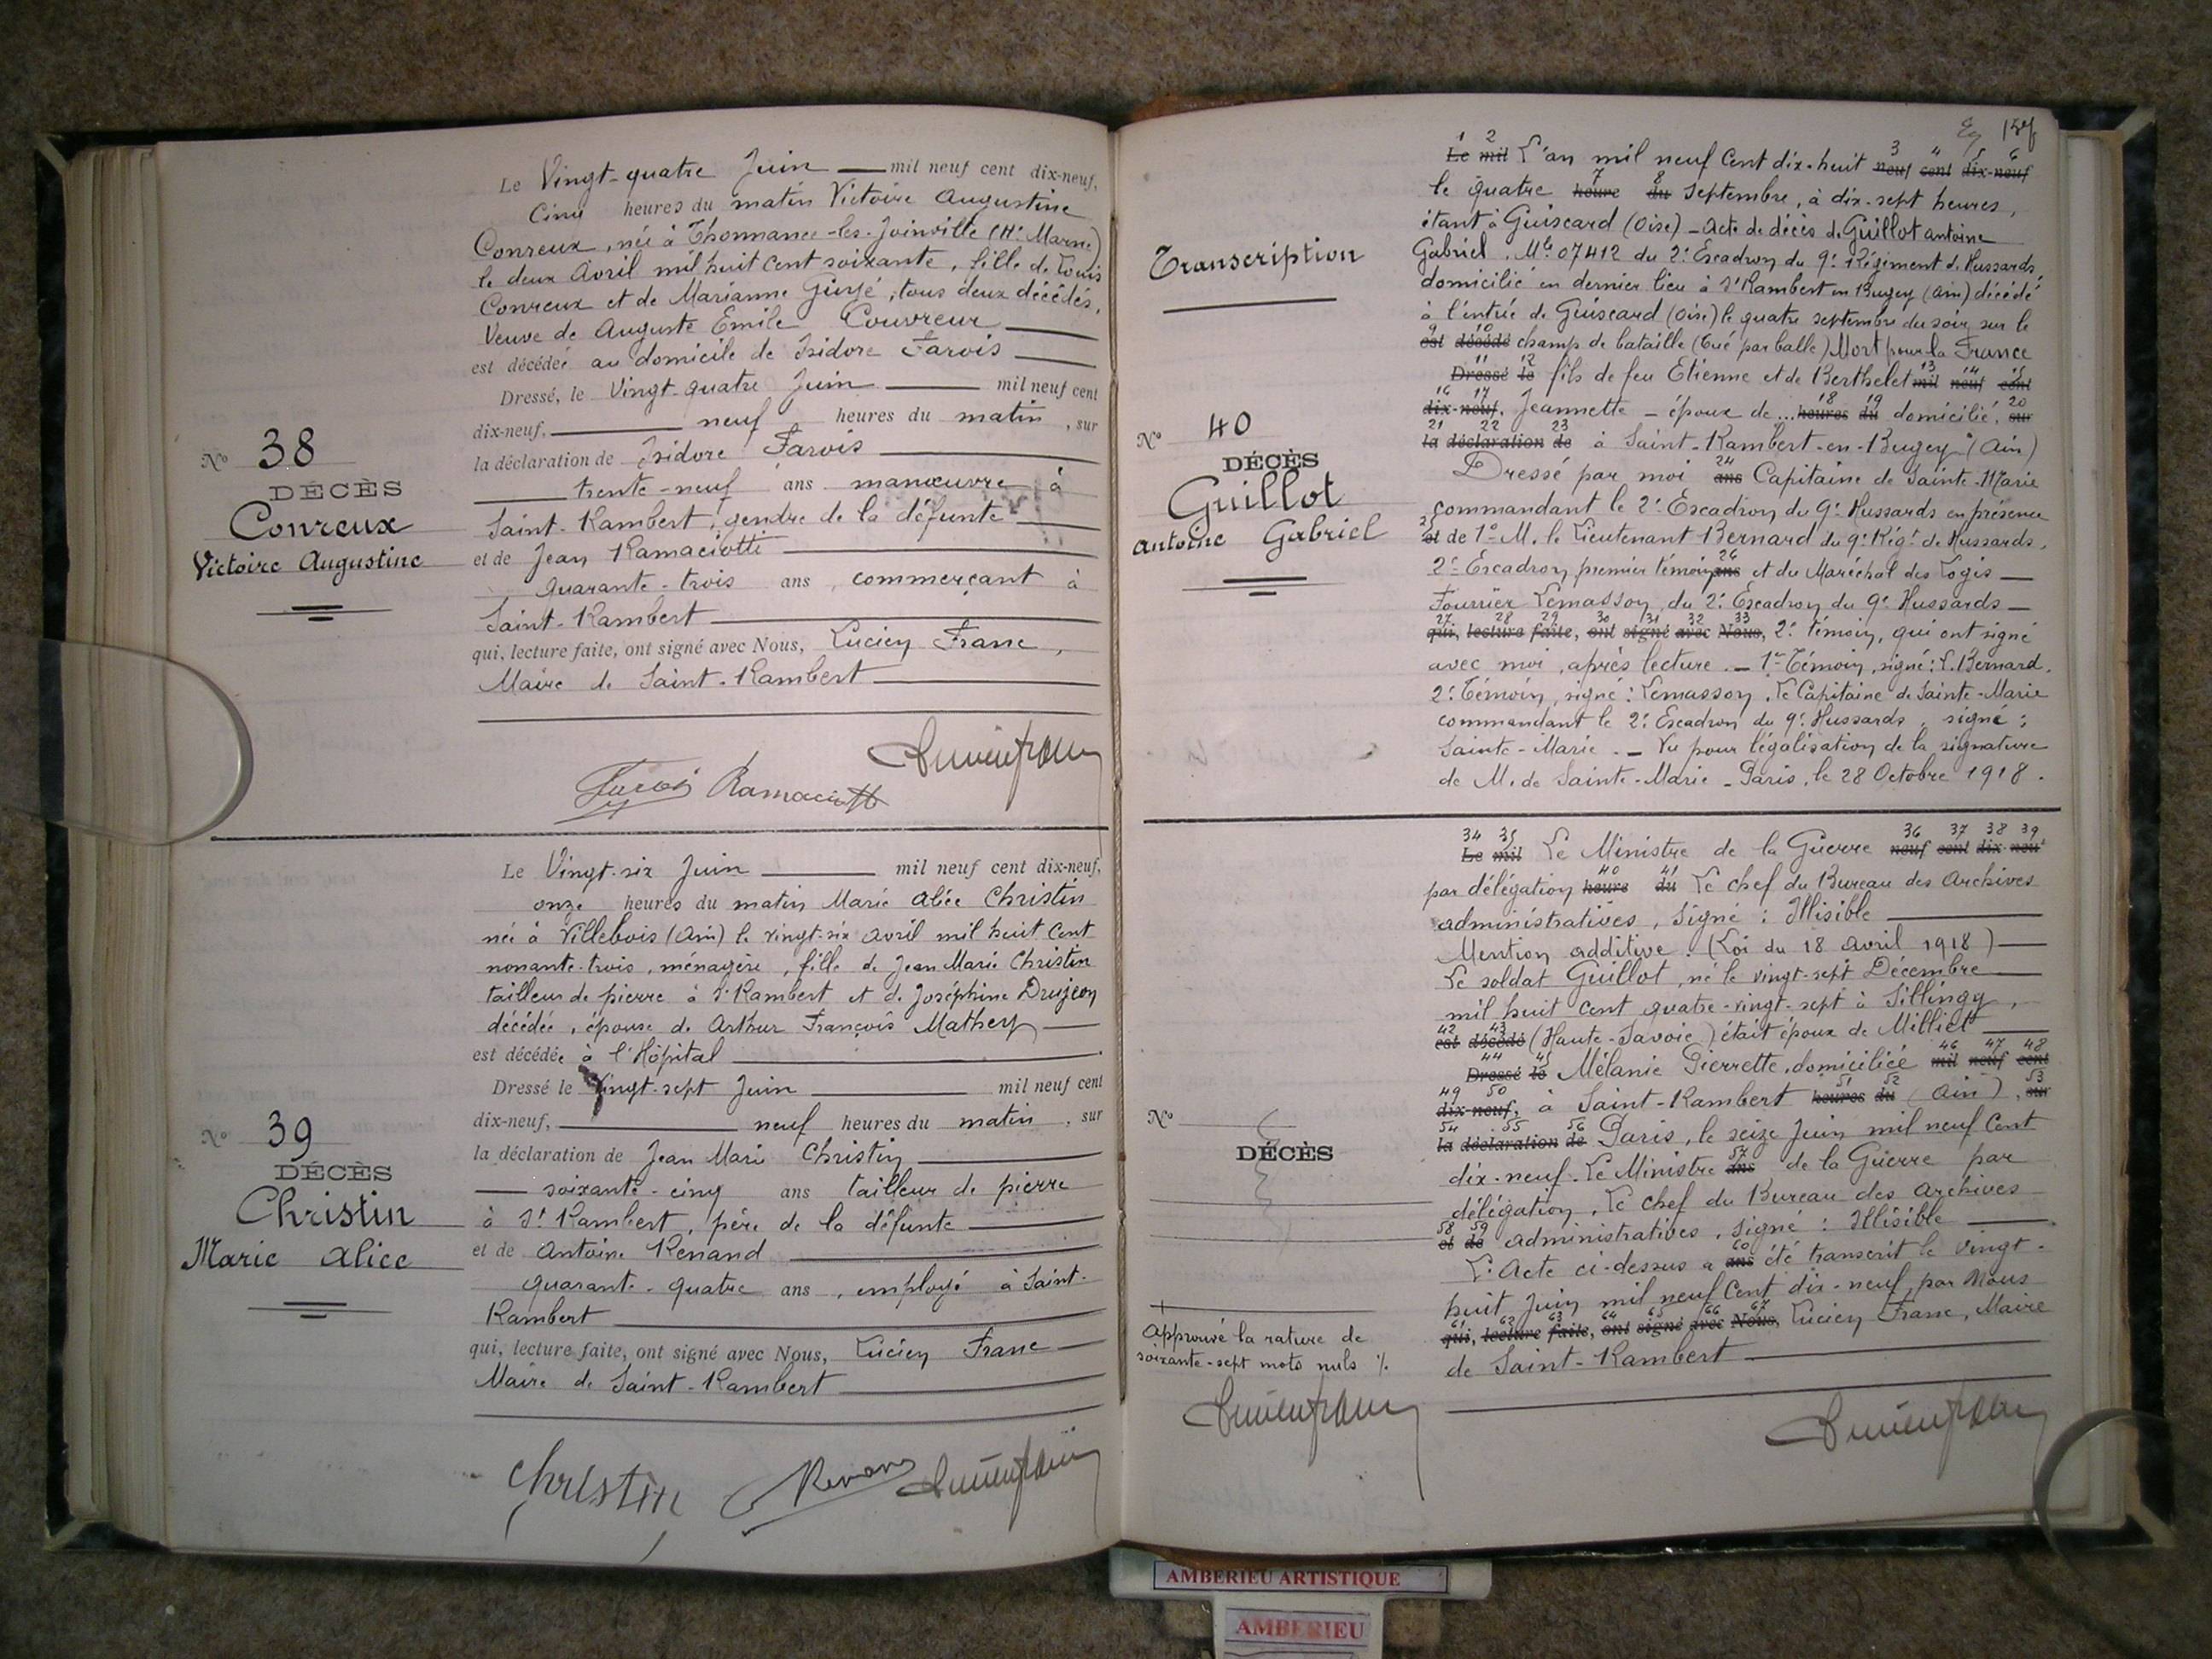 Le Vingt-quatre Juin mil neuf cent dix-neuf,
Cinq heures du matin Victoire Augustine
Conreux, née à Thonnance-les-Joinville (Hte Marne)
le deux Avril mil huit cent soixante, fille de Louis
Conreux et de Marianne tous deux décédés,
Veuve de Auguste Emile Couvreur
est décédée au domicile de Isidore Farois
Dressé, le Vingt-quatre Juin mil neuf cent
dix-neuf, neuf heures du matin, sur
la déclaration de Isidore Farois
trente-neuf ans manœuvre à
Saint-Rambert, gendre de la défunte
et de Jean Ramaciotti
quarante-trois ans, commerçant à
Saint-Rambert
qui, lecture faite, ont signé avec Nous, Lucien Franc,
Maire de Saint-Rambert
N° 38
DÉCÈS
Conreux
Victoire Augustine
Farois Ramaciotti Lucien Franc
Le Vingt-six Juin mil neuf cent dix-neuf,
onze heures du matin Marie Alice Christin
née à Villebois (Ain) le vingt-six avril mil huit cent
nonante-trois, ménagère, fille de Jean Marie Christin
tailleur de pierre à St Rambert et de Joséphine Drujon
décédée, épouse de Arthur François Mathey
est décédée à l'Hôpital
Dressé le Vingt-sept Juin mil neuf cent
dix-neuf, neuf heures du matin, sur
la déclaration de Jean Marie Christin
soixante-cinq ans tailleur de pierre
à St Rambert, père de la défunte
et de Antoine Renand
quarante-quatre ans, employé à Saint-
Rambert
qui, lecture faite, ont signé avec Nous, Lucien Franc
Maire de Saint-Rambert
N° 39
DÉCÈS
Christin
Marie Alice
Christin Renand Lucien Franc
157
1 2 3 4 5 6
Le mil L'an mil neuf Cent dix-huit neuf cent dix-neuf
7 8
le quatre heure du Septembre, à dix-sept heures,
étant à Guiscard (Oise) - Acte de décès de Guillot Antoine
Gabriel, Mle 07412 du 2e Escadron du 9e Régiment de Hussards,
domicilié en dernier lieu à St Rambert en Bugey (Ain) décédé
à l'entrée de Guiscard (Oise) le quatre septembre du soir, sur le
9 10
est décédé champ de bataille (tué par balle) Mort pour la France
11 12 13 14 15
Dressé le fils de feu Etienne et de Berthelet mil neuf cent
16 17 18 19 20
dix-neuf, Jeannette - époux de ... heures du domicilié, sur
21 22 23
la déclaration de à Saint-Rambert-en-Bugey (Ain)
24
Dressé par moi ans Capitaine de Sainte-Marie
commandant le 2e Escadron du 9e Hussards en présence
25
et de 1° M. le Lieutenant Bernard du 9e Régt de Hussards,
26
2e Escadron, premier témoin ans et du Maréchal des Logis
Fourrier Lemasson, du 2e Escadron du 9e Hussards
27 28 29 30 31 32 33
qui, lecture faite, ont signé avec Nous, 2e témoin, qui ont signé
avec moi, après lecture. - 1er Témoin, signé : L. Bernard.
2e Témoin, signé : Lemasson. Le Capitaine de Sainte-Marie
commandant le 2e Escadron du 9e Hussards, signé :
Sainte-Marie. - Vu pour légalisation de la signature
de M. de Sainte-Marie - Paris, le 28 Octobre 1918.
Transcription
N° 40
DÉCÈS
Guillot
Antoine Gabriel
34 35 36 37 38 39
Le mil Le Ministre de la Guerre neuf cent dix-neuf
40 41
par délégation heure du Le chef du Bureau des Archives
administratives, Signé : Illisible
Mention additive : (Loi du 18 avril 1918)
Le soldat Guillot, né le vingt-sept Décembre
mil huit cent quatre-vingt-sept à Sillingy,
42 43
est décédé (Haute-Savoie) était époux de Milliet
44 45 46 47 48
Dressé le Mélanie Pierrette, domiciliée mil neuf cent
49 50 51 52 53
dix-neuf, à Saint-Rambert heures du (Ain), sur
54 55 56
la déclaration de Paris, le seize Juin mil neuf Cent
57
dix-neuf. Le Ministre ans de la Guerre par
délégation, Le chef du Bureau des Archives
58 59
et de administratives, signé : Illisible
60
L'Acte ci-dessus a ans été transcrit le Vingt-
huit Juin mil neuf Cent dix-neuf, par Nous
61 62 63 64 65 66 67
qui, lecture faite, ont signé avec Nous, Lucien Franc, Maire
de Saint-Rambert
N°
DÉCÈS
Approuvé la rature de
soixante-sept mots nuls
Lucien Franc Lucien Franc
AMBERIEU ARTISTIQUE
AMBERIEU